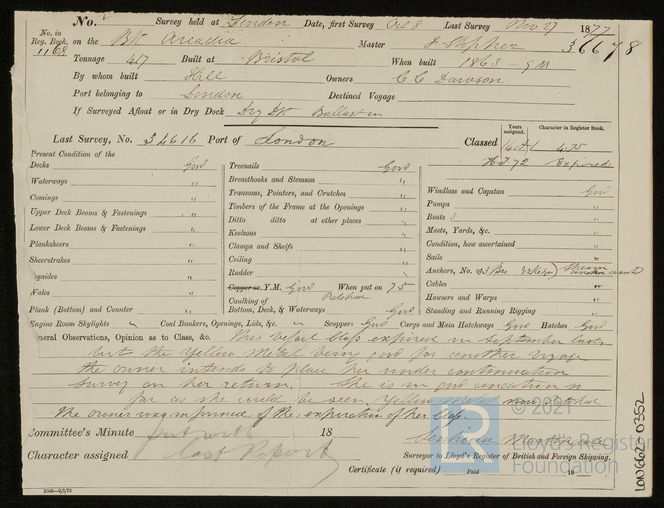 No. Survey held at London Date, first Survey Oct 8 Last Survey Nov 27 1877
No. in Reg. Book. 1168 on the Bk Arcadia Master J Stephen 36678
Tonnage 417 Built at Bristol When built 1863 - 9 M
By whom built Hill Owners C C Dawson
Port belonging to London Destined Voyage
If Surveyed Afloat or in Dry Dock Dry Dk Ballast in
Last Survey, No. 34616 Port of London Classed
Years assigned. Character in Register Book.
4.75
H.T 72 Expired
Present Condition of the
Decks Good
Waterways "
Comings "
Upper Deck Beams & Fastenings "
Lower Deck Beams & Fastenings "
Planksheers "
Sheerstrakes "
Topsides "
Wales "
Plank (Bottom) and Counter "
Treenails Good
Breasthooks and Stemson "
Transoms, Pointers, and Crutches "
Timbers of the Frame at the Openings "
Ditto ditto at other places "
Keelsons "
Clamps and Shelfs "
Ceiling "
Rudder "
Copper or Y.M. Good When put on 75
Caulking of Bottom, Deck, & Waterways Good
Windlass and Capstan Good
Pumps "
Boats 3 "
Masts, Yards, &c. "
Condition, how ascertained "
Sails "
Anchors, No. of 3 Bro & 2 Kedges
Cables "
Hawsers and Warps "
Standing and Running Rigging "
Engine Room Skylights " Coal Bunkers, Openings, Lids, &c. " Scuppers Good Cargo and Main Hatchways Good Hatches Good
General Observations, Opinion as to Class, &c. This vessels Class expired in September last,
but the Yellow Metal being good for another voyage
the owner intends to place her under continuation
survey on her return. She is in good condition as
far as she could be seen, Yellow Metal
The owner was informed of the expiration of her Class.
Committee's Minute 18
put with
last Report
Character assigned
Surveyor to Lloyd's Register of British and Foreign Shipping.
Certificate (if required) Paid 18
2000—9/5/76
© 2021
Lloyd's Register
Foundation
LON662-0352